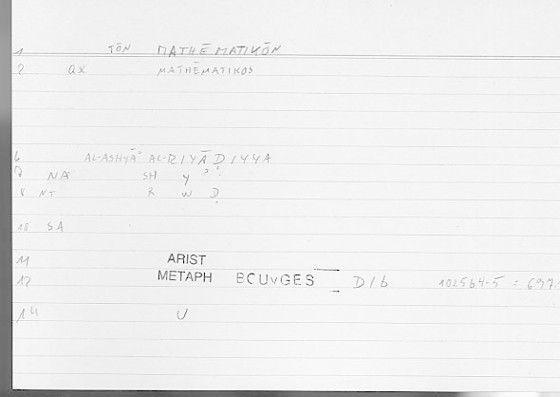 1 TŌN MATHĒMATIKŌN
2 QX MATHĒMATIKOS
6 AL-ASHYĀʾ AL-RIYĀḌIYYA
7 NA SH Y ʾ
8 NT R W Ḍ
10 SA
11 ARIST
12 METAPH BCUvGES D16 102564-5 = 697
14 U